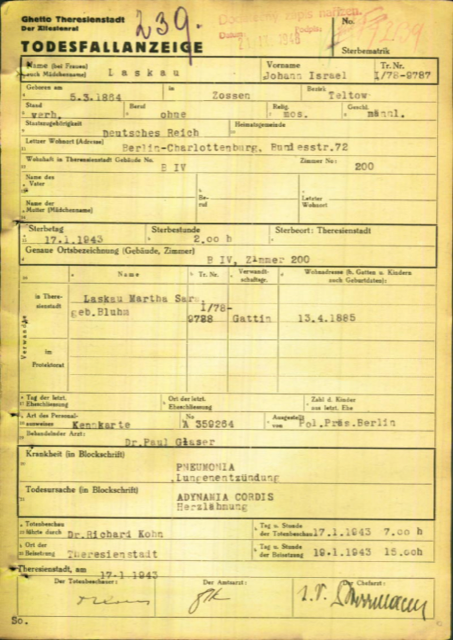 Ghetto Theresienstadt
Der Ältestenrat
TODESFALLANZEIGE
239.
No.
Sterbematrik
Name (bei Frauen auch Mädchenname) Laskau
Vorname Johann Israel
Tr. Nr. I/78-9787
Geboren am 5.3.1864
in Zossen
Bezirk Teltow
Stand verh.
Beruf ohne
Relig. mos.
Geschl. männl.
Staatszugehörigkeit Deutsches Reich
Heimatsgemeinde
Letzter Wohnort (Adresse) Berlin-Charlottenburg, Bundesstr.72
Wohnhaft in Theresienstadt Gebäude No. B IV
Zimmer No: 200
Name des Vater
Beruf
Letzter Wohnort
Name der Mutter (Mädchenname)
Sterbetag 17.1.1943
Sterbestunde 2.00 h
Sterbeort: Theresienstadt
Genaue Ortsbezeichnung (Gebäude, Zimmer) B IV, Zimmer 200
Name
Tr. Nr.
Verwandtschaftsgr.
Wohnadresse (b. Gatten u. Kindern auch Geburtdaten):
Verwandte
in Theresienstadt
Laskau Martha Sara geb.Bluhm
I/78-9788
Gattin
13.4.1885
im Protektorat
Tag der letzt. Eheschliessung
Ort der letzt. Eheschliessung
Zahl d. Kinder aus letzt. Ehe
Art des Personalausweises Kennkarte
No A 359264
Ausgestellt von Pol.Präs.Berlin
Behandelnder Arzt: Dr.Paul Glaser
Krankheit (in Blockschrift)
PNEUMONIA
Lungenentzündung
Todesursache (in Blockschrift)
ADYNAMIA CORDIS
Herzlähmung
Totenbeschau führte durch Dr.Richard Kohn
Tag u. Stunde der Totenbeschau 17.1.1943 7.00 h
Ort der Beisetzung Theresienstadt
Tag u. Stunde der Beisetzung 19.1.1943 15.00h
Theresienstadt, am 17.1.1943
Der Totenbeschauer:
Der Amtsarzt:
Der Chefarzt:
So.